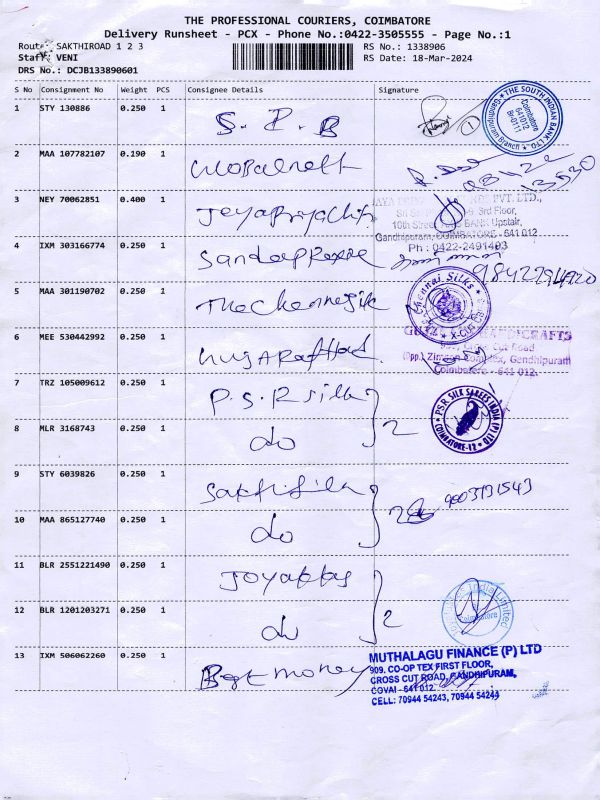 THE PROFESSIONAL COURIERS, COIMBATORE
Delivery Runsheet - PCX - Phone No.:0422-3505555 - Page No.:1
Route: SAKTHIROAD 1 2 3
RS No.: 1338906
Staff: VENI
RS Date: 18-Mar-2024
DRS No.: DCJB133890601
S No Consignment No Weight PCS Consignee Details Signature
1 STY 130886 0.250 1 S. I. B
THE SOUTH INDIAN BANK LTD.
Coimbatore
641012
Br-0111
Gandhipuram Branch
2 MAA 107782107 0.190 1
3 NEY 70062851 0.400 1
PVT. LTD.,
3rd Floor,
10th Street BANK Upstair,
Gandhipuram, COIMBATORE - 641 012
Ph : 0422-2491403
4 IXM 303166774 0.250 1
5 MAA 301190702 0.250 1
Chennai Silks
X-CUT
6 MEE 530442992 0.250 1
HANDICRAFTS
Cut Road
(Opp.) Complex, Gandhipuram
Coimbatore - 641 012.
7 TRZ 105009612 0.250 1 P.S.R silk
PSR SILK SAREES INDIA (P) LTD
COIMBATORE-12
8 MLR 3168743 0.250 1 do 2
9 STY 6039826 0.250 1 Sakthi silk
10 MAA 865127740 0.250 1 do 2
11 BLR 2551221490 0.250 1
12 BLR 1201203271 0.250 1 do 2
India Limited
Coimbatore
13 IXM 506062260 0.250 1 Best money
MUTHALAGU FINANCE (P) LTD
909, CO-OP TEX FIRST FLOOR,
CROSS CUT ROAD, GANDHIPURAM,
COVAI - 641 012.
CELL: 70944 54243, 70944 54244